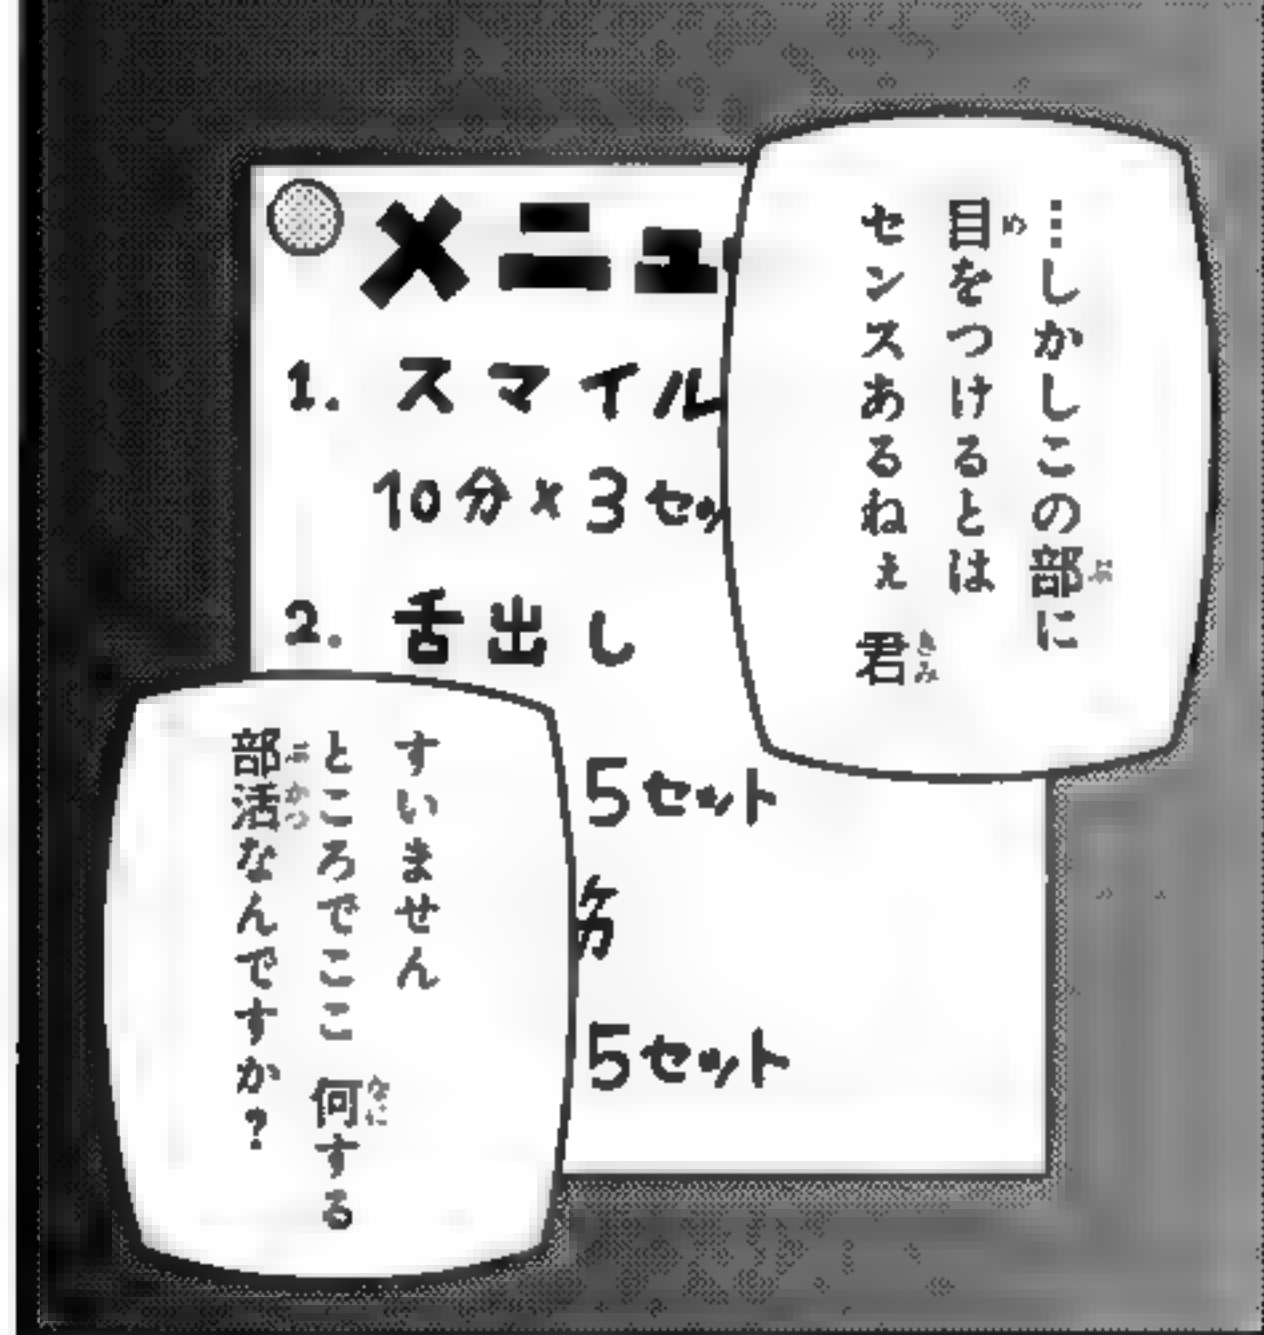 …しかしこの部に
目をつけるとは
センスあるねぇ 君
メニュ
1. スマイル
10分×3セッ
2. 舌出し
5セット
5セット
すいません
ところでここ 何する
部活なんですか?